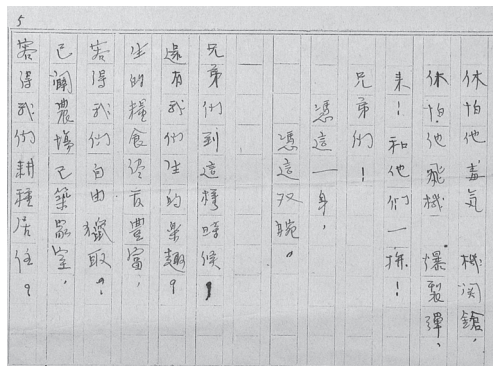 5
休怕他毒気 機関鎗,
休怕他飛機 爆裂彈,
来!和他們一拚!
兄弟們!
憑這一身,
憑這双腕。
兄弟們到這樣時候!
還有我們生的樂趣?
生的糧食儘夜豐富,
容得我們自由獵取?
已闢農場已築家室,
容得我們耕種居住?